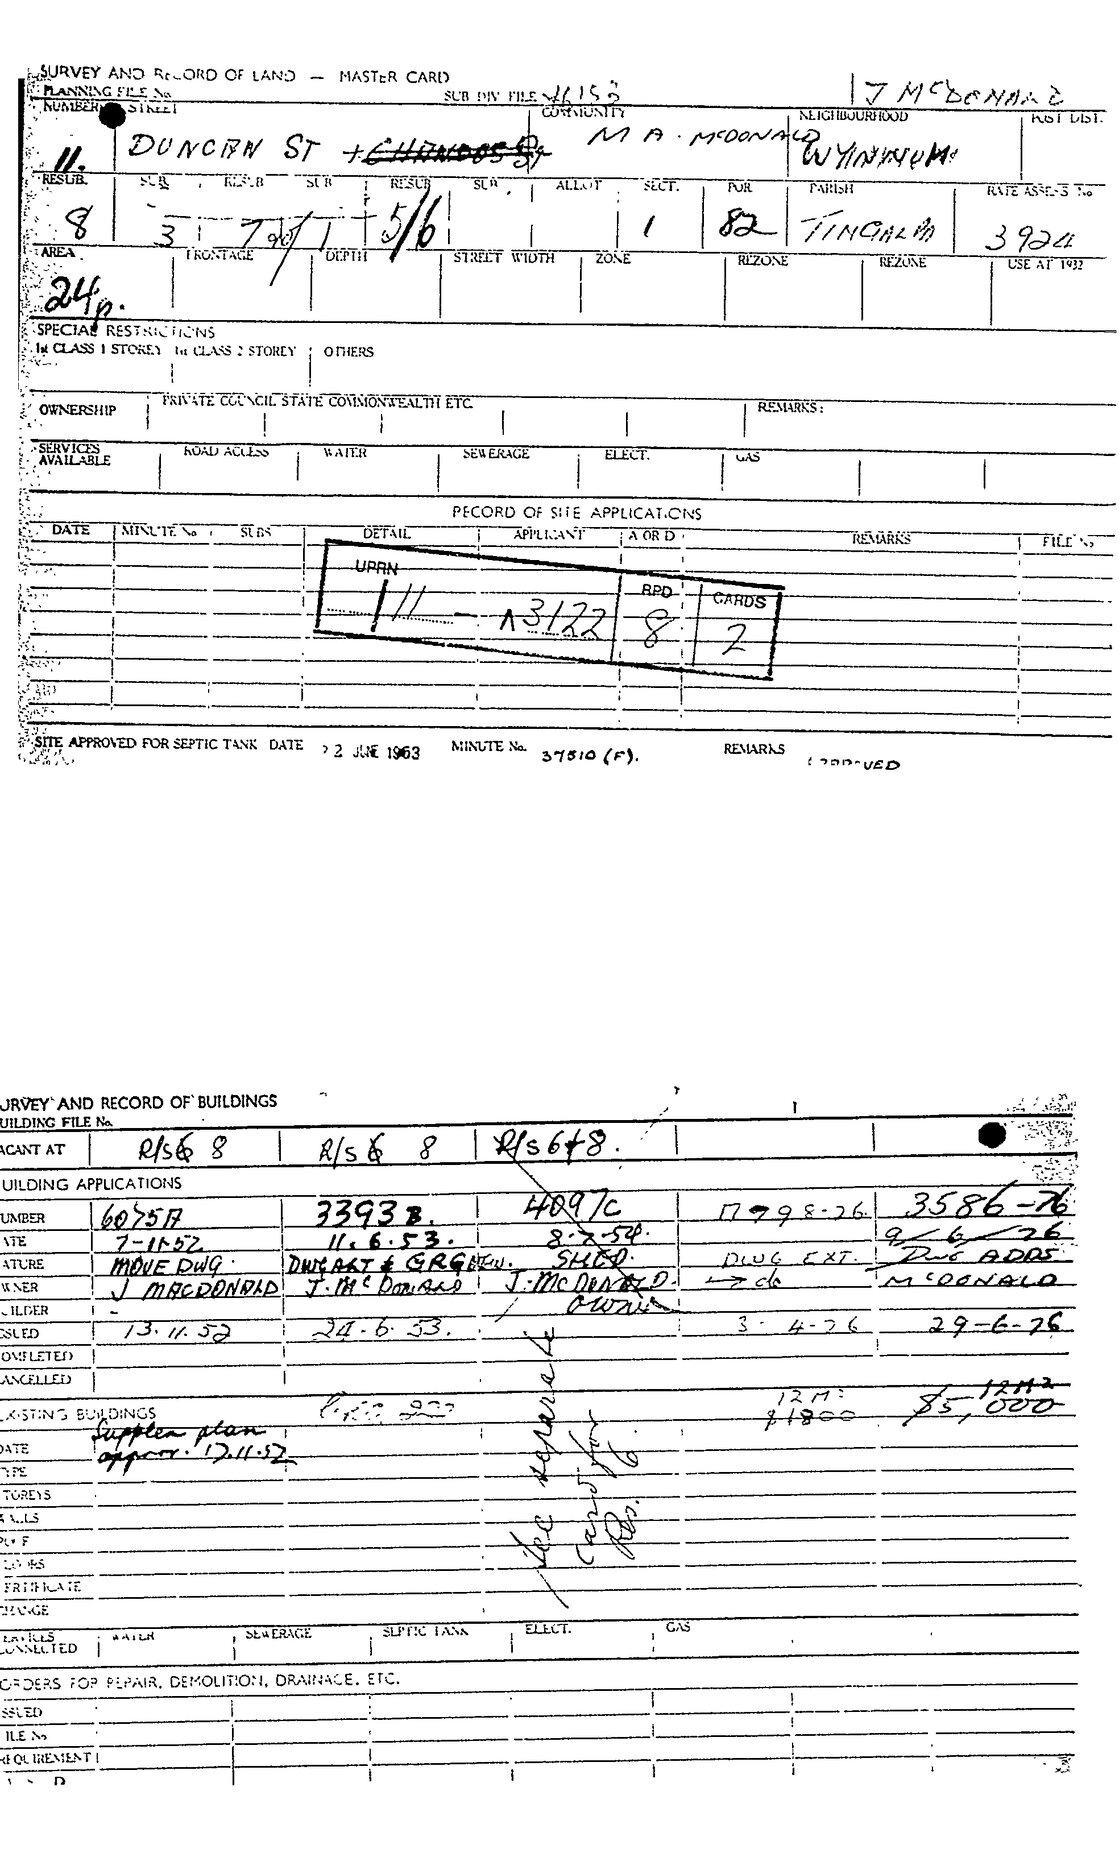 SURVEY AND RECORD OF LAND — MASTER CARD
PLANNING FILE No SUB DIV FILE J McDONALD
NUMBER STREET COMMUNITY NEIGHBOURHOOD POST DIST.
11. DUNCAN ST + CHANDOS St M A. McDONALD WYNNUM
RESUB. SUB RESUB SUB RESUB SUB. ALLOT SECT. POR PARISH RATE ASSESS No
8 3 7 1 5/6 1 82 TINGALPA 3924
AREA FRONTAGE DEPTH STREET WIDTH ZONE REZONE REZONE USE AT 1932
24p.
SPECIAL RESTRICTIONS
1st CLASS 1 STOREY 1st CLASS 2 STOREY OTHERS
OWNERSHIP PRIVATE COUNCIL STATE COMMONWEALTH ETC. REMARKS:
SERVICES AVAILABLE ROAD ACCESS WATER SEWERAGE ELECT. GAS
RECORD OF SITE APPLICATIONS
DATE MINUTE No SUBS DETAIL APPLICANT A OR D REMARKS FILE No
UPRN RPD CARDS
111 - 3122 8 2
SITE APPROVED FOR SEPTIC TANK DATE 2 JUNE 1963 MINUTE No. 37510 (F). REMARKS
URVEY AND RECORD OF BUILDINGS
UILDING FILE No.
ACANT AT R/S6 8 R/S 6 8 R/S 6+8.
UILDING APPLICATIONS
UMBER 6075A 3393B. 4097C 3586-76
ATE 7-11-52 11.6.53. 8-7-54. 9/6/76
ATURE MOVE DWG. DWG ALT & GRGE SHED. DWG EXT. DWG ADDS
WNER J MACDONALD J. McDONALD J. McDONALD. do McDONALD
UILDER - owner
SSUED 13.11.52 24.6.53. 3 4-76 29-6-76
OMPLETED
ANCELLED
EXISTING BUILDINGS 12M² 12M²
$1800 $5,000
Supplem plan
DATE approv. 17.11.52
YPE
TOREYS
See separate
card for
Res. 6
ERTIFICATE
HANGE
ERVICES CONNECTED WATER SEWERAGE SEPTIC TANK ELECT. GAS
ORDERS FOR REPAIR, DEMOLITION, DRAINAGE, ETC.
SSUED
ILE No
REQUIREMENT